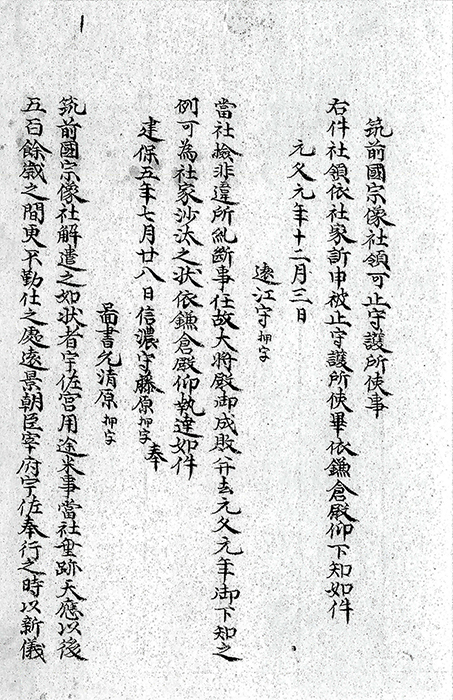 筑前國宗像社領可止守護所使事
右件社領依社家訴申被止守護所使畢依鎌倉殿仰下知如件
元久元年十二月三日
遠江守押字
當社檢非違所糺断事任故大將殿御成敗幷去元久元年御下知之
例可為社家沙汰之状依鎌倉殿仰執達如件
建保五年七月廿八日信濃守藤原押字奉
啚書允清原押字
筑前國宗像社解遣之如状者宇佐宮用途米事當社垂跡天應以後
五百餘歳之間更不勤仕之處遠景朝臣宰府宇佐奉行之時以新儀